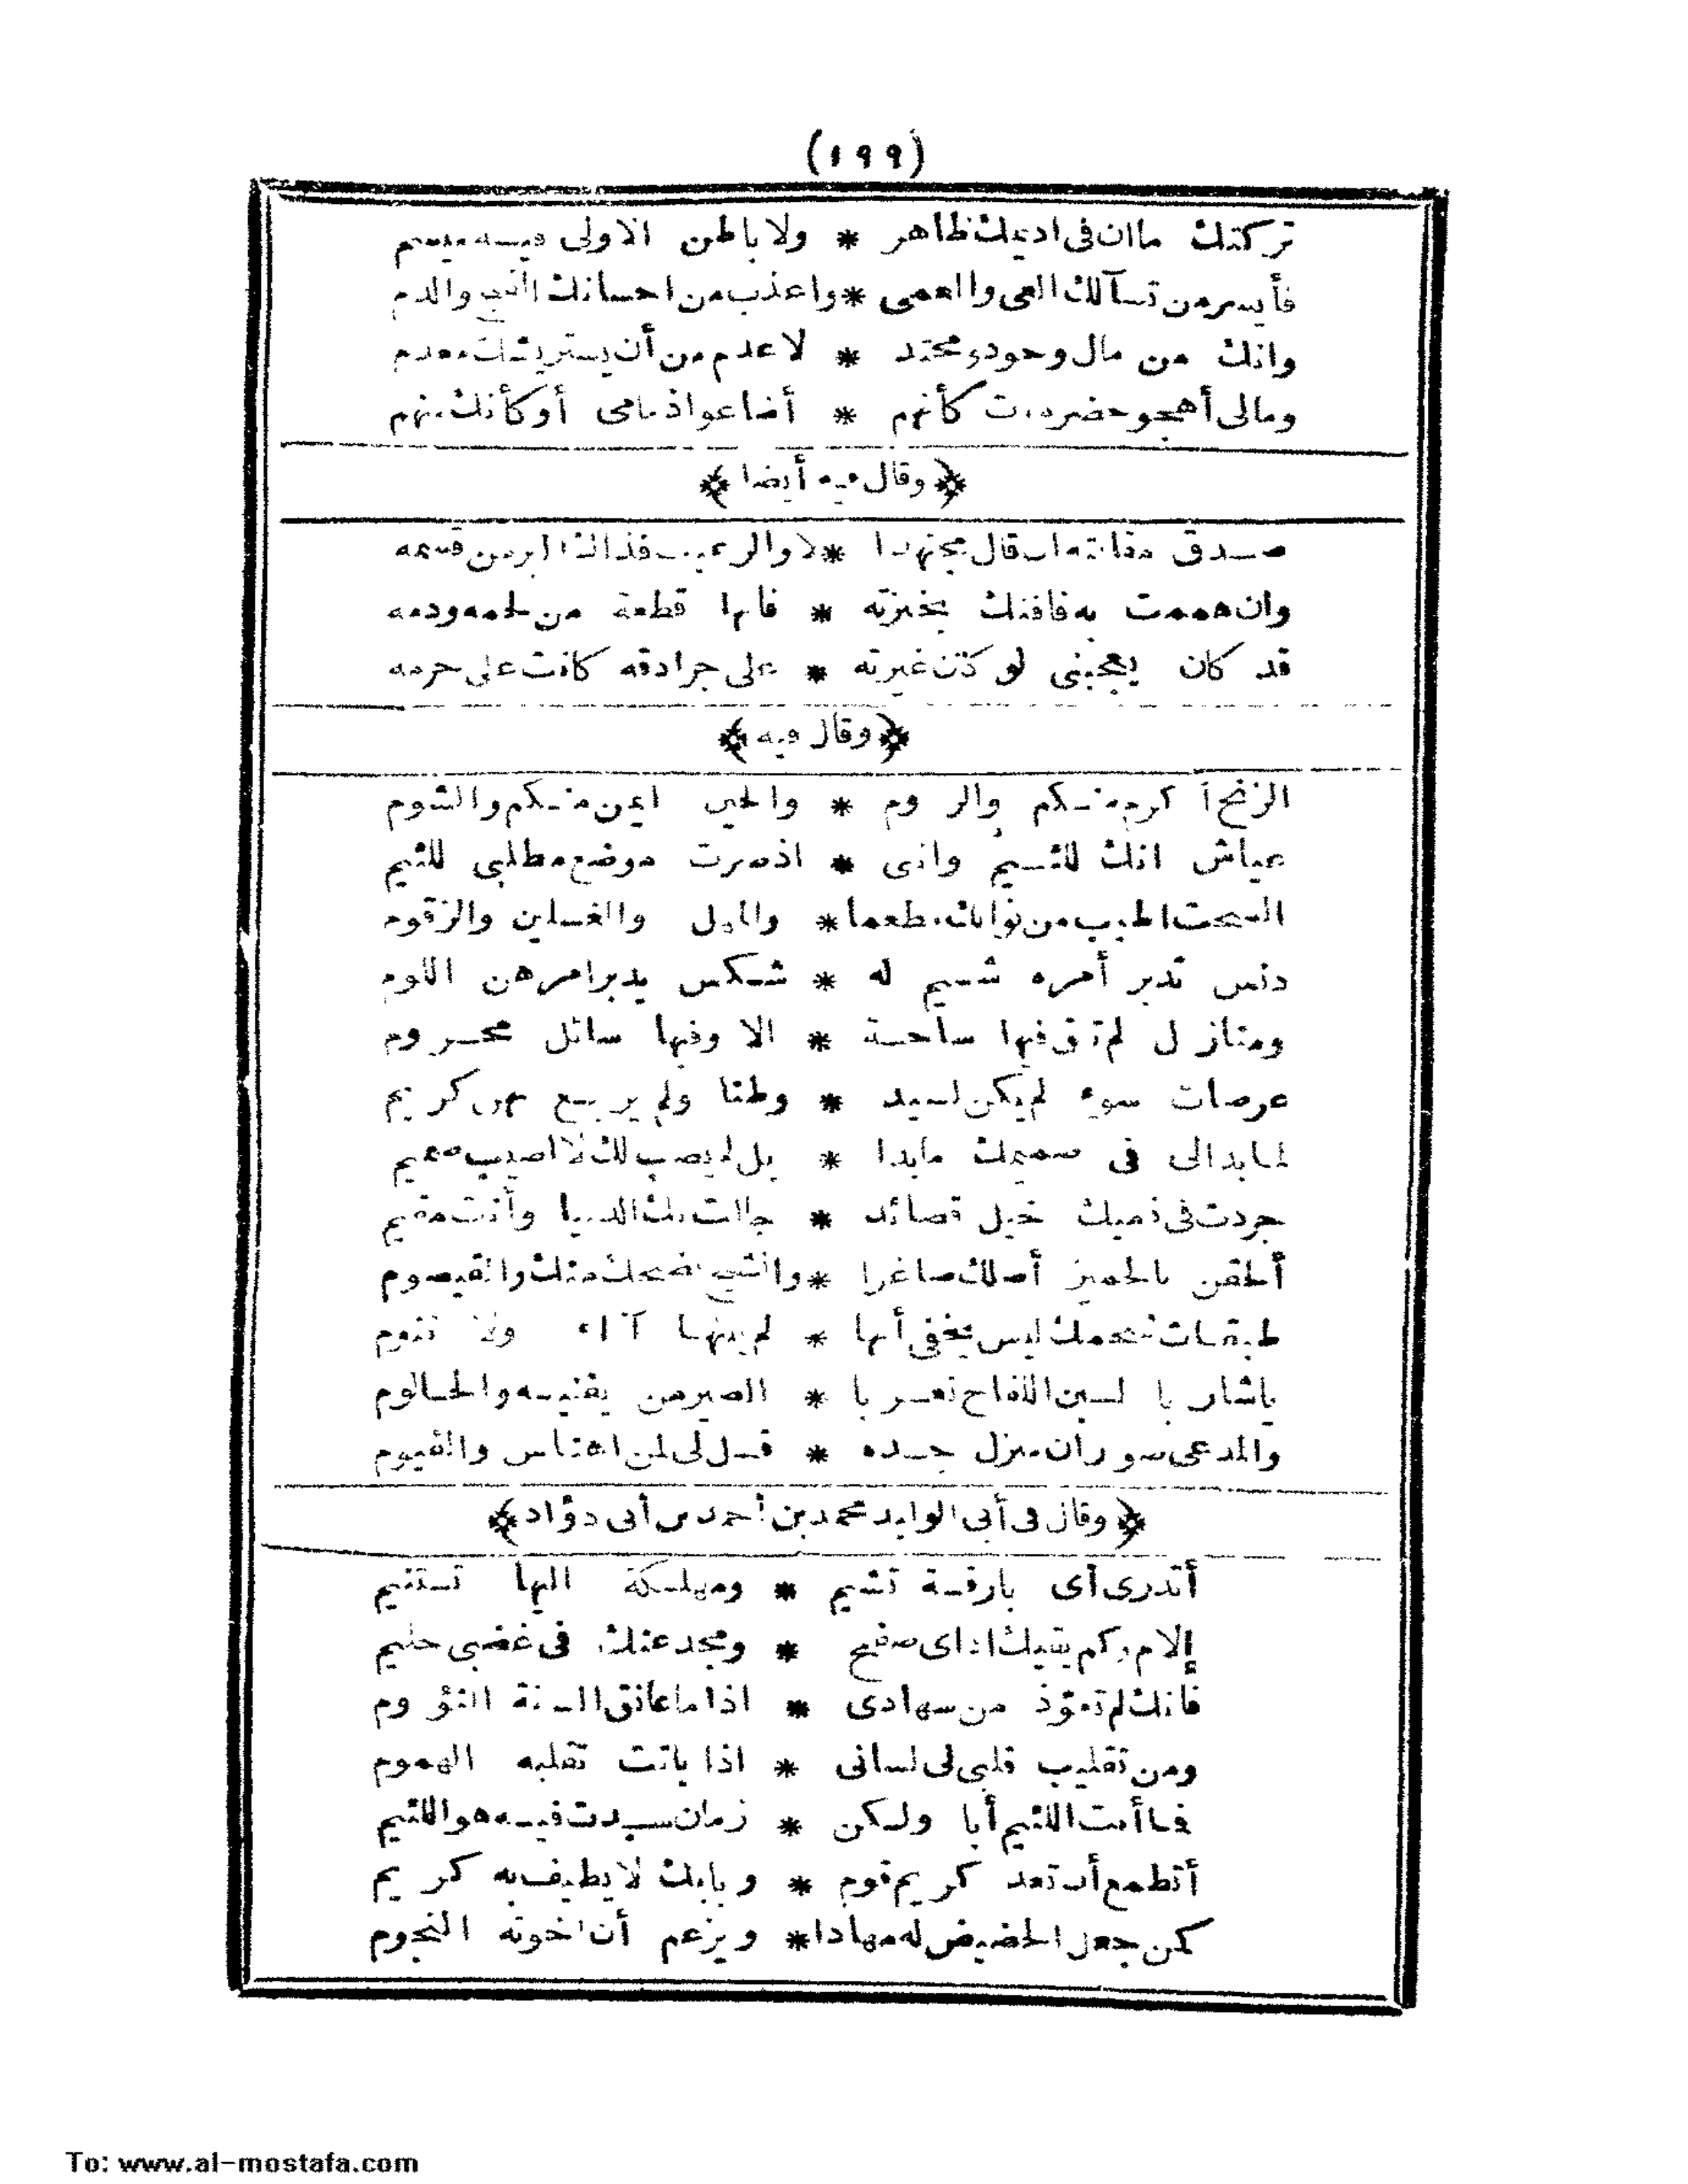 (١٩٩)
تركتك ماان فى اديمك ظاهر * ولا باطن الا ولى فيسه ميسم
فأيسر من تسآلك العى والعمى * واعذب من احسانك القيح والدم
وانك من مال وجود ومحتد * لاعدم من أن يستريشك معدم
ومالى أهجو حضرموت كأنهم * أضاعوا ذمامى أو كأنك منهم
﴿وقال فيه أيضا﴾
صدق مقالته ان قال مجتهدا * لا والرغيف فذاك البر من قسمه
وان هممت به فافتك بخبزته * فانها قطعة من لحمه ودمه
قد كان يعجبنى لو كان غيرته * على جرادقه كانت على حرمه
﴿وقال فيه﴾
الزنج أكرم منكم والروم * والحين ايمن منكم والشوم
عياش انك للئيم وانى * اذ صرت موضع مطلبى للئيم
السحت اطيب من نوالك مطعما * والمهل والغسلين والزقوم
دنس تدبر أمره شيم له * شكس يدبر امرهن اللوم
ومنازل لم تق فيها ساحة * الا وفيها سائل محروم
عرصات سوء لم يكن لسيد * وطنا ولم يربع بهن كريم
لما بدالى فى صميمك مابدا * بل لم يصب لك لا اصيب صميم
جردت فى ذميك خيل قصائد * جالت بك الدنيا وأنت مقيم
ألحقن بالجميز أصلك صاغرا * والشيح يضحك منك والقيصوم
طبقات شحمك ليس يخفى أنها * لم يبنها آء ولا تنوم
ياشاربا لبن اللقاح تعسربا * الصير من يقنيه والحالوم
والمدعى صوران منزل جده * قل لى لمن اهناس والفيوم
﴿وقال فى أبى الوليد محمد بن أحمد بن أبى دؤاد﴾
أتدرى أى بارقة تشيم * ومهلكة اليها تستنيم
إلام وكم يقيك اذاى صفح * ومجد عنك فى غضبى حليم
فانك لم تعوّذ من سهادى * اذا ما عانق السنة النؤوم
ومن تقليب قلبى لى لسانى * اذا باتت تقلبه الهموم
فما أنت اللئيم أبا ولكن * زمان سدت فيه هو اللئيم
أتطمع أن تعد كريم قوم * وبابك لا يطيف به كريم
كمن جعل الحضيض له مهادا * ويزعم أن اخوته النجوم
To: www.al-mostafa.com